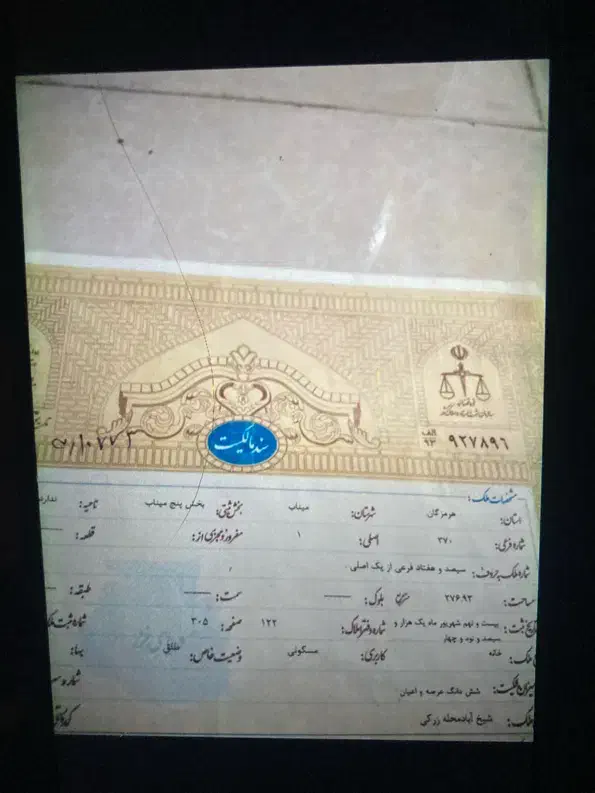 سند مالکیت
الف
۹۳
۹۲۷۸۹۶
مشخصات ملک:
استان: هرمزگان شهرستان: میناب بخش ثبتی: بخش پنج میناب ناحیه: ندارد
شماره فرعی: ۳۷۰ اصلی: ۱ مفروز و مجزی از: قطعه:
شماره ملک به حروف: سیصد و هفتاد فرعی از یک اصلی
مساحت: ۲۷۶۹۲ مترمربع بلوک: سمت: طبقه:
تاریخ ثبت: بیست و نهم شهریور ماه یک هزار و سیصد و نود و چهار شماره دفتر املاک: ۱۲۲ صفحه: ۳۰۵ شماره ثبت ملک
ملک: خانه کاربری: مسکونی وضعیت خاص: طلق بهاء:
میزان مالکیت: شش دانگ عرصه و اعیان
ملک: شیخ آباد محله زرکی